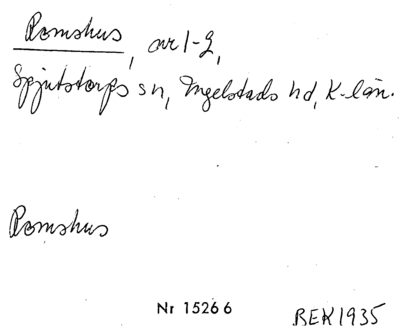 Romshus, nr 1-2,
Spjutstorps sn, Ingelstads hd, K-län.
Romshus
Nr 15266
BEK1935